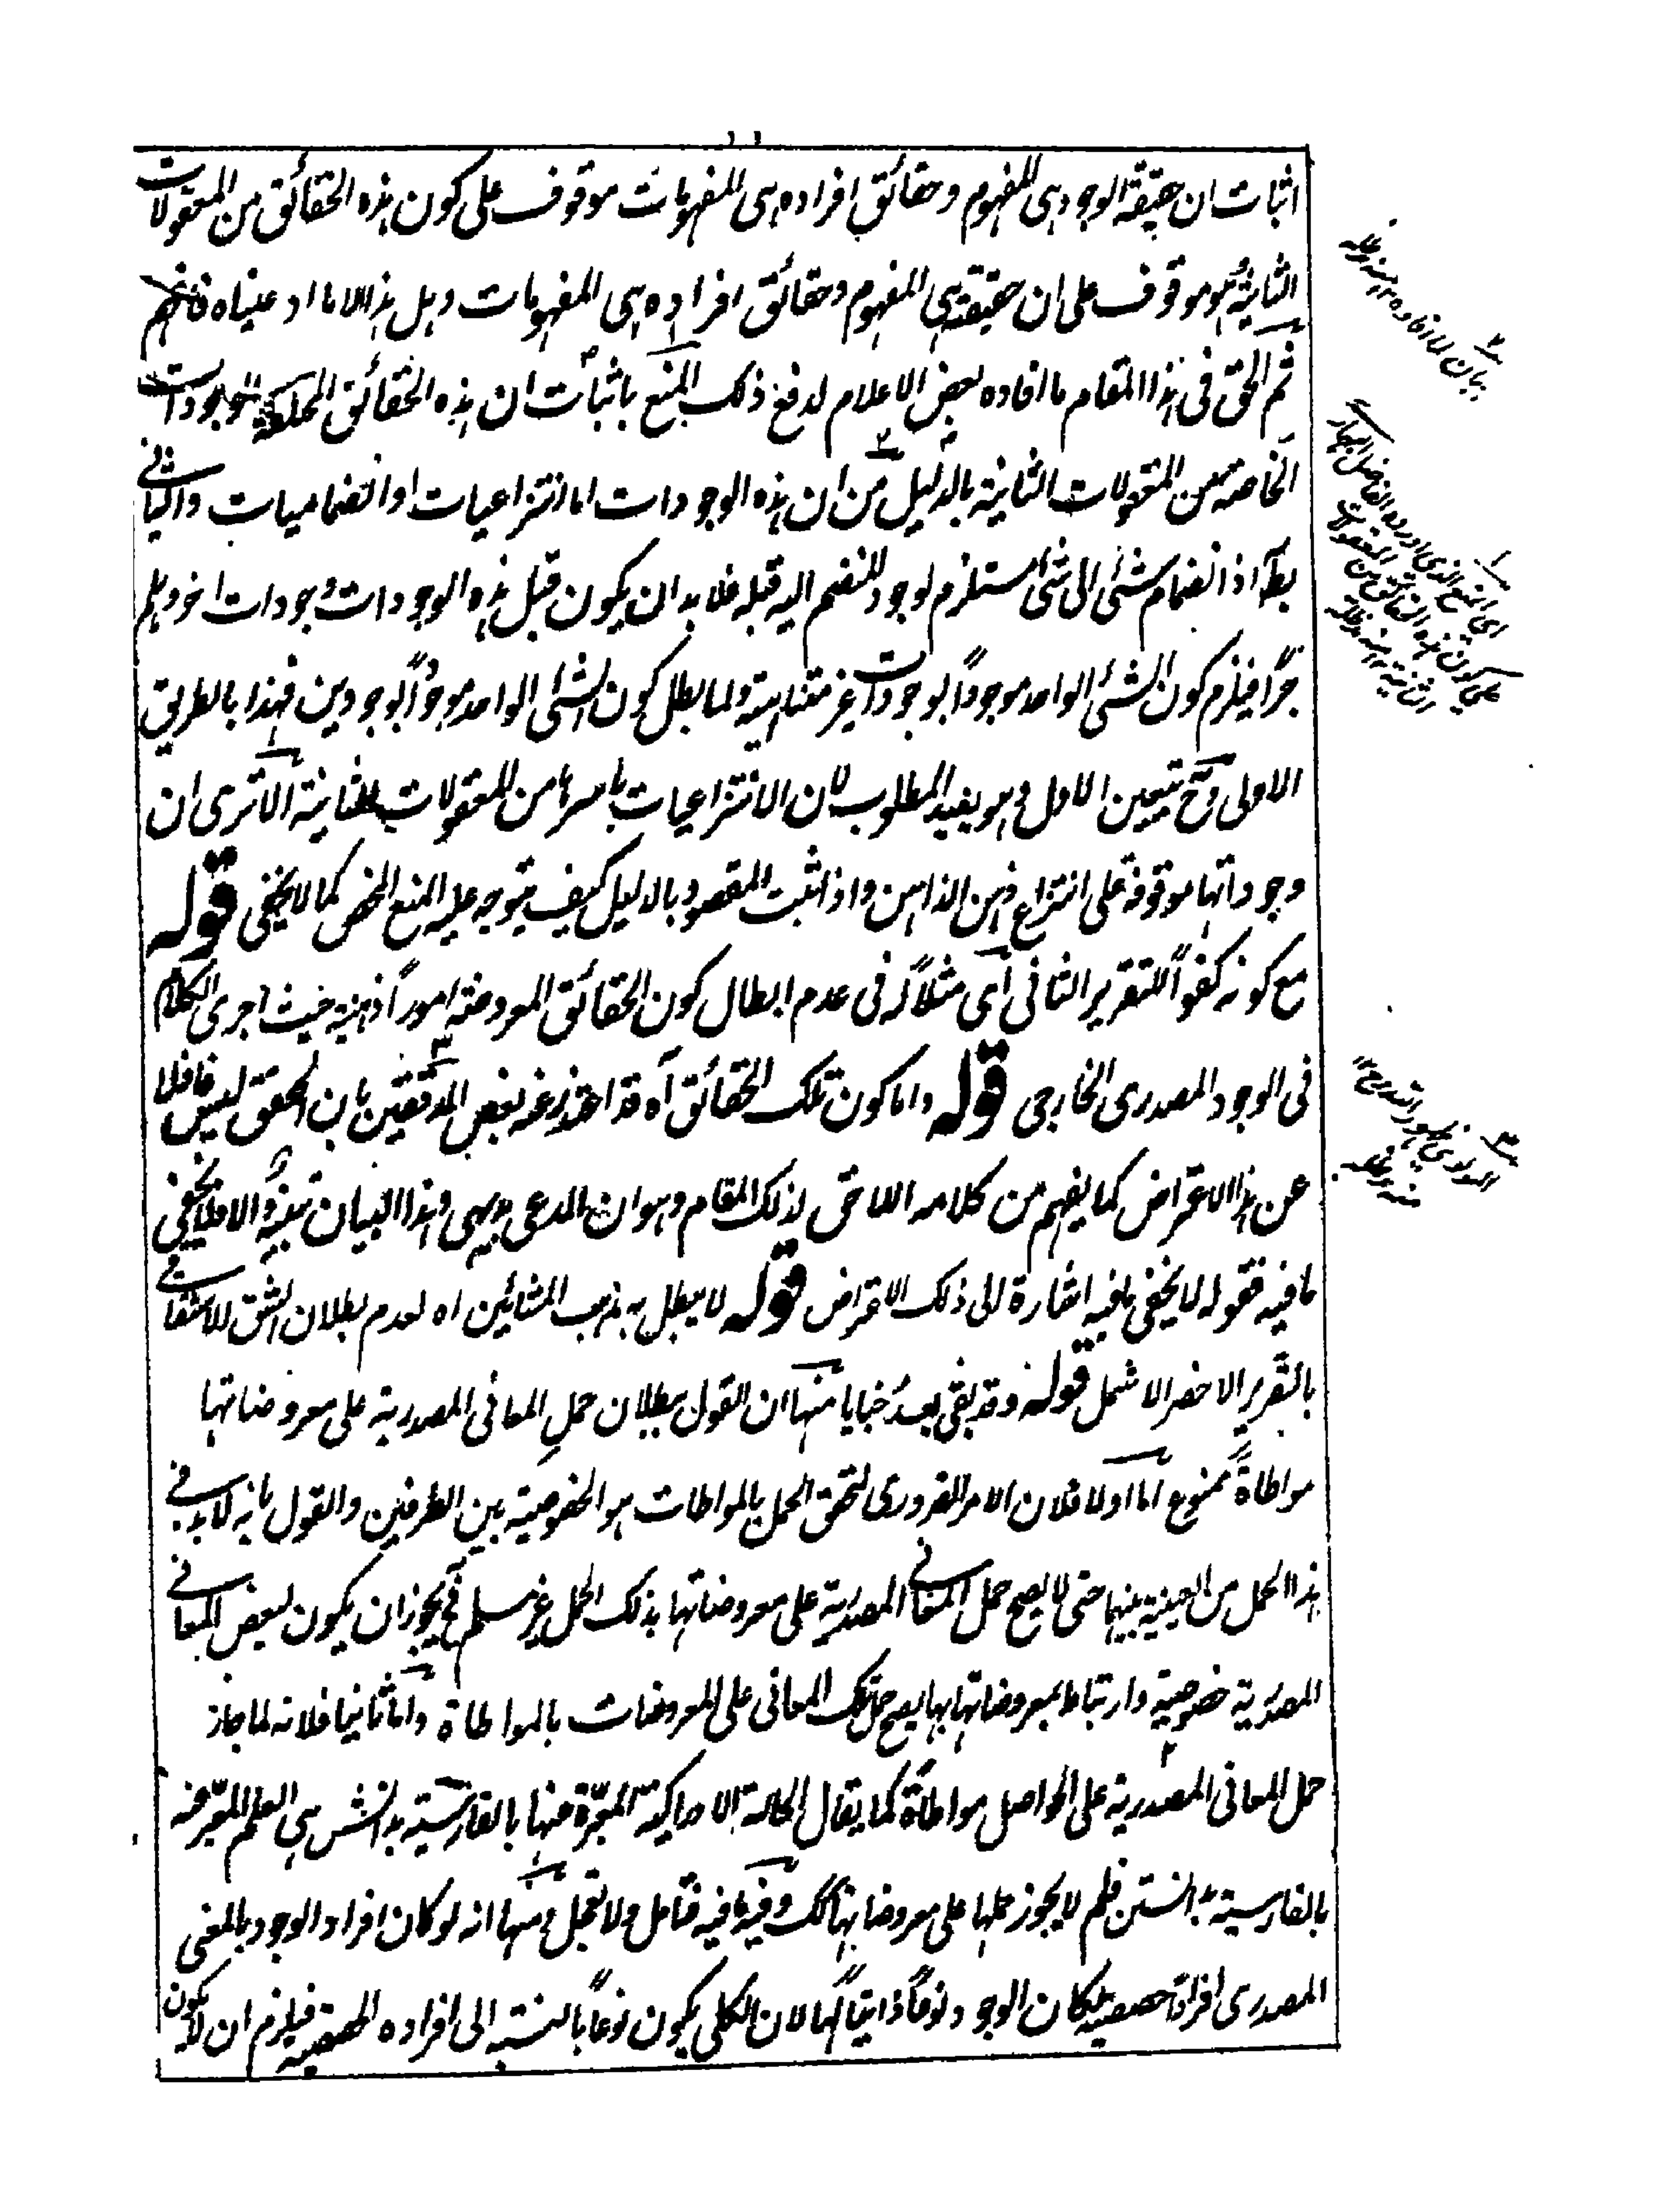 اثبات ان حقيقة الوجود هى المفهوم وحقائق افراده هى المفهومات موقوف على كون هذه الحقائق من المعقولات
الثانية وهو موقوف على ان حقيقته هى المفهوم وحقائق افراده هى المفهومات وهل هذا الا ما ادعيناه فافهم
ثم الحق فى هذا المقام ما افاده بعض الاعلام لدفع ذلك المنع باثبات ان هذه الحقائق الوجودات
الخاصة من المعقولات الثانية بالدليل من ان هذه الوجودات اما انتزاعيات او انضماميات والثانى
بط اذ انضمام شئ الى شئ مستلزم لوجود المنضم اليه قبله فلا بد ان يكون قبل هذه الوجودات وجودات اخر وهلم
جرًّا فيلزم كون الشئ الواحد موجودًا بوجودات غير متناهية ولما بطل كون الشئ الواحد موجودًا بوجودين فهذا بالطريق
الاولى وح يتعين الاول وهو يفيد المطلوب لان الانتزاعيات باسرها من المعقولات الثانية الا ترى ان
وجوداتها موقوفة على انتزاع ذهن الذاهن واذا ثبت المقصود بالدليل كيف يتوجه عليه المنع المحض كما لا يخفى قوله
مع كونه كفوًا للتقرير الثانى اى مثلًا له فى عدم ابطال كون الحقائق المعروضة امورًا ذهنية حيث اجرى الكلام
فى الوجود المصدرى الخارجى قوله واما كون تلك الحقائق آه قد اعتذر عنه بعض المدققين بان المحقق ليس غافلا
عن هذا الاعتراض كما يفهم من كلامه اللاحق لذلك المقام وهو ان المدعى بديهى وهذا البيان تنبيه والا فلا يخفى
ما فيه فقوله لا يخفى ما فيه اشارة الى ذلك الاعتراض قوله لا يبطل به مذهب المشائين اه لعدم بطلان الشق الاشتقاقى
بالتقرير الاخصر الاشمل قوله وقد بقى بعد خبايا منها ان القول ببطلان حمل المعانى المصدرية على معروضاتها
مواطاةً ممنوع اما اولا فلان الامر الضرورى لتحقق الحمل بالمواطات هو الخصوصية بين الطرفين والقول بانه لا بد فى
هذا الحمل من العينية بينهما حتى لا يصح حمل المعانى المصدرية على معروضاتها بذلك الحمل غير مسلم فيجوز ان يكون لبعض المعانى
المصدرية خصوصية وارتباط بمعروضاتها بها يصح حمل تلك المعانى على المعروضات بالمواطاة واما ثانيا فلانه لما جاز
حمل المعانى المصدرية على الحواصل مواطاةً كما يقال الحالة الادراكية المعبّرة عنها بالفارسية بدانش هى العلم المعبّر عنه
بالفارسية بدانستن فلم لا يجوز حملها على معروضاتها كك وفيه ما فيه فتامل ولا تعجل ومنها انه لو كان افراد الوجود بالمعنى
المصدرى افرادًا حصصية لكان الوجود نوعًا ذاتيًا لها لان الكلى يكون نوعًا بالنسبة الى افراده الحصصية فيلزم ان لا يكون
بيان لما افاده
اى المنع الذى اورده الفاضل
على كون هذه الحقائق من المعقولات
الثانية